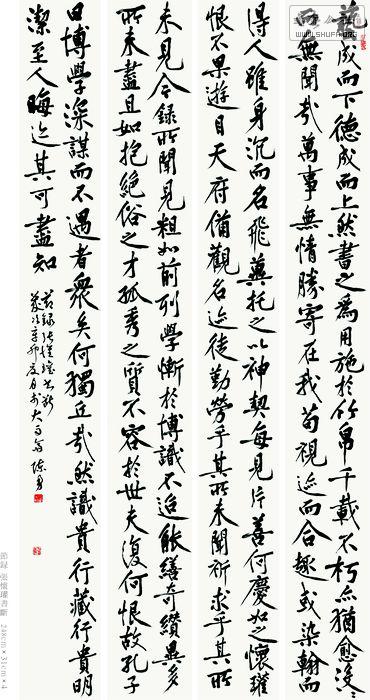 藝成而下德成而上然書之為用施於竹帛千載不朽亦猶愈沒
而無聞哉萬事無情勝寄在我苟視迹而合趣或染翰而
得人雖身沉而名飛冀托之以神契每見片善何慶如之懷瓘
恨不果遊目天府備觀名迹徒勤勞乎其所未聞祈求乎其所
未見今錄所聞見粗如前列學慚於博識不迨能繕奇纘異多
所未盡且如抱絕俗之才孤秀之質不容於世夫復何恨故孔子
曰博學深謀而不遇者眾矣何獨丘哉然識貴行藏行貴明
潔至人晦迹其可盡知
節錄張懷瓘書斷
歲次辛卯夏月於大
節録 張懷瓘書斷 248cm×31cm×4
WWW.SHUFA.ORG